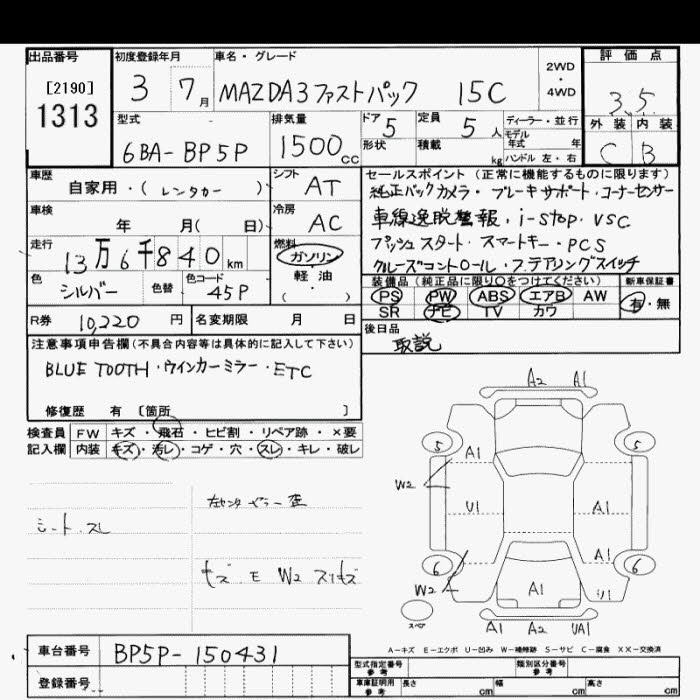 出品番号
[2190]
1313
初度登録年月
3 7月
車名・グレード
MAZDA3ファストバック 15C
2WD
・
4WD
評価点
3.5
外装 内装
C B
型式
6BA-BP5P
排気量
1500cc
ドア 5
形状
定員 5人
積載 kg
ディーラー・並行
モデル
年式 年
ハンドル 左・右
車歴
自家用・(レンタカー)
シフト
AT
車検
年 月( 日)
冷房
AC
走行
13万6千840km
燃料
ガソリン
軽・油
( )
色
シルバー
色替
色コード
45P
R券 10,220円
名変期限 月 日
セールスポイント(正常に機能するものに限ります)
純正バックカメラ・ブレーキサポート・コーナーセンサー
車線逸脱警報・i-stop・VSC
プッシュスタート・スマートキー・PCS
クルーズコントロール・ステアリングスイッチ
装備品(純正品に限り○をつけてください)
PS PW ABS エアB AW
SR ナビ TV カワ
新車保証書
有・無
後日品
取説
注意事項申告欄(不具合内容等は具体的に記入して下さい)
BLUE TOOTH・ウインカーミラー・ETC
修復歴 有 [箇所 ]
検査員
記入欄
FW キズ・飛石・ヒビ割・リペア跡・×要
内装 キズ・汚レ・コゲ・穴・スレ・キレ・破レ
シート・スレ
左センターピラー歪
キズ・E W2 スリキズ
A2 A1
5 5
A1
W2
U1 A1
A1
6 6
W2
A1 U1
スペア
A1 A2 UA1
A-キズ E-エクボ U-凹み W-補修跡 S-サビ C-腐食 XX-交換済
車台番号 BP5P-150431
登録番号
型式指定番号
参考
類別区分番号
参考
車庫証明用
参考
長さ cm 幅 cm 高さ cm